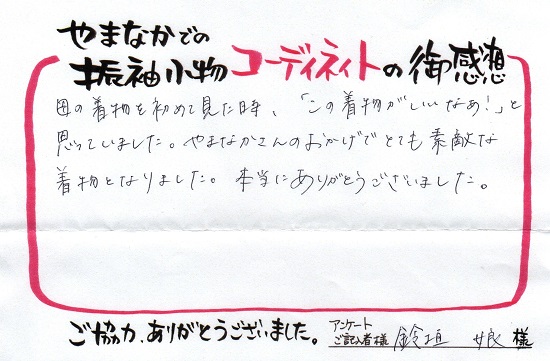 やまなかでの
振袖小物コーディネイトの御感想
母の着物を初めて見た時、「この着物がいいなあ!」と
思っていました。やまなかさんのおかげでとても素敵な
着物となりました。本当にありがとうございました。
ご協力、ありがとうございました。
アンケート
ご記入者様 鈴垣 娘 様